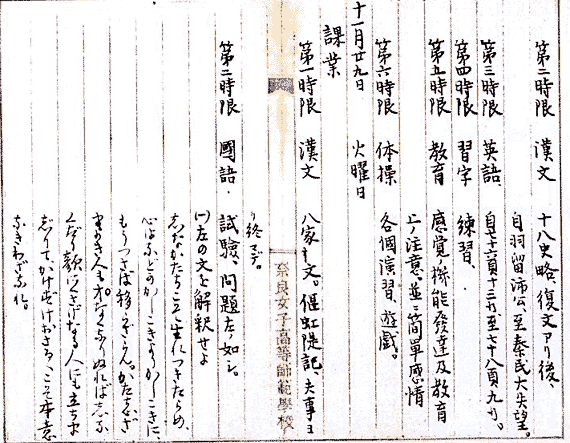 第二時限 漢文 十八史略、復文アリ後、
自羽留沛公、至秦民大失望。
第三時限 英語、自七十六頁十三行至七十八頁九行。
第四時限 習字 練習、
第五時限 教育 感覚ノ機能發達及教育
上ノ注意並ニ簡單感情
第六時限 体操 各個演習、遊戯。
十一月廿九日 火曜日
課業
第一時限 漢文 八家文。偃虹隄記、夫事ヨ
奈良女子高等師範學校
リ終マデ。
第二時限 國語、試驗、問題左ノ如シ、
(一)左の文を解釈せよ
しなかたちこそ生れつきたらめ、
心はなどかかしこきよりかしこきに、
もうつさば移らざらん。かたち心ざ
まよき人も才なくなりぬれば、しな
くだり顔にくさげなる人にも立ちま
じりてかけずけおさるゝこそ本意
なきわざなれ。